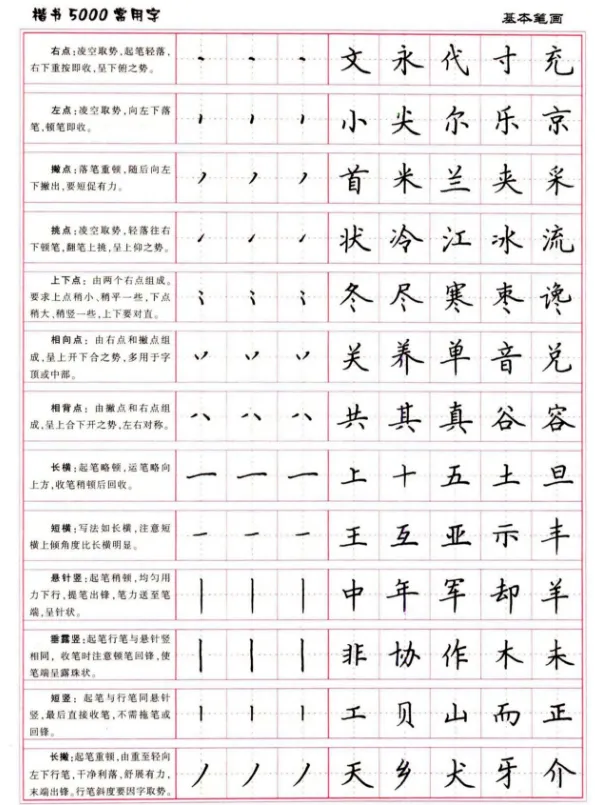 楷书5000常用字
基本笔画
右点：凌空取势，起笔轻落，
右下重按即收，呈下俯之势。
文 永 代 寸 充
左点：凌空取势，向左下落
笔，顿笔即收。
小 尖 尔 乐 京
撇点：落笔重顿，随后向左
下撇出，要短促有力。
首 米 兰 夹 采
挑点：凌空取势，轻落往右
下顿笔，翻笔上挑，呈上仰之势。
状 冷 江 冰 流
上下点：由两个右点组成。
要求上点稍小、稍平一些，下点
稍大、稍竖一些，上下要对直。
冬 尽 寒 枣 谗
相向点：由右点和撇点组
成，呈上开下合之势，多用于字
顶或中部。
关 养 单 音 兑
相背点：由撇点和右点组
成，呈上合下开之势，左右对称。
共 其 真 谷 容
长横：起笔略顿，运笔略向
上方，收笔稍顿后回收。
上 十 五 土 旦
短横：写法如长横，注意短
横上倾角度比长横明显。
王 互 亚 示 丰
悬针竖：起笔稍顿，均匀用
力下行，提笔出锋，笔力送至笔
端，呈针状。
中 年 军 却 羊
垂露竖：起笔行笔与悬针竖
相同，收笔时注意顿笔回锋，使
笔端呈露珠状。
非 协 作 木 未
短竖：起笔与行笔同悬针
竖，最后直接收笔，不需拖笔或
回锋。
工 贝 山 而 正
长撇：起笔重顿，由重至轻向
左下行笔，干净利落，舒展有力，
末端出锋。行笔斜度要因字取势。
天 乡 犬 牙 介